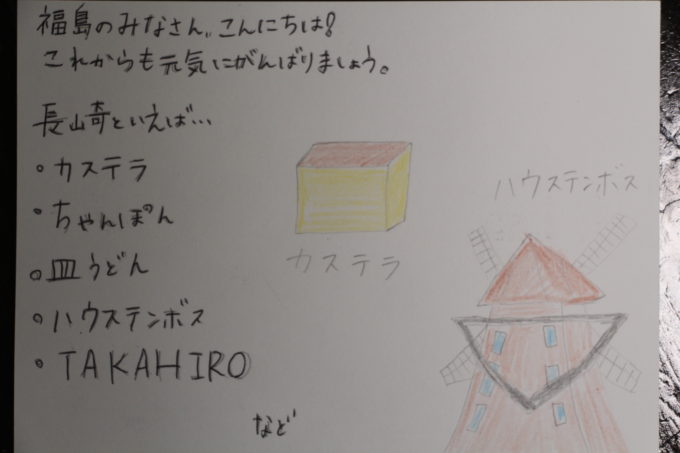 福島のみなさん、こんにちは!
これからも元気にがんばりましょう。
長崎といえば…
・カステラ
・ちゃんぽん
・皿うどん
・ハウステンボス
・TAKAHIRO
など
カステラ
ハウステンボス